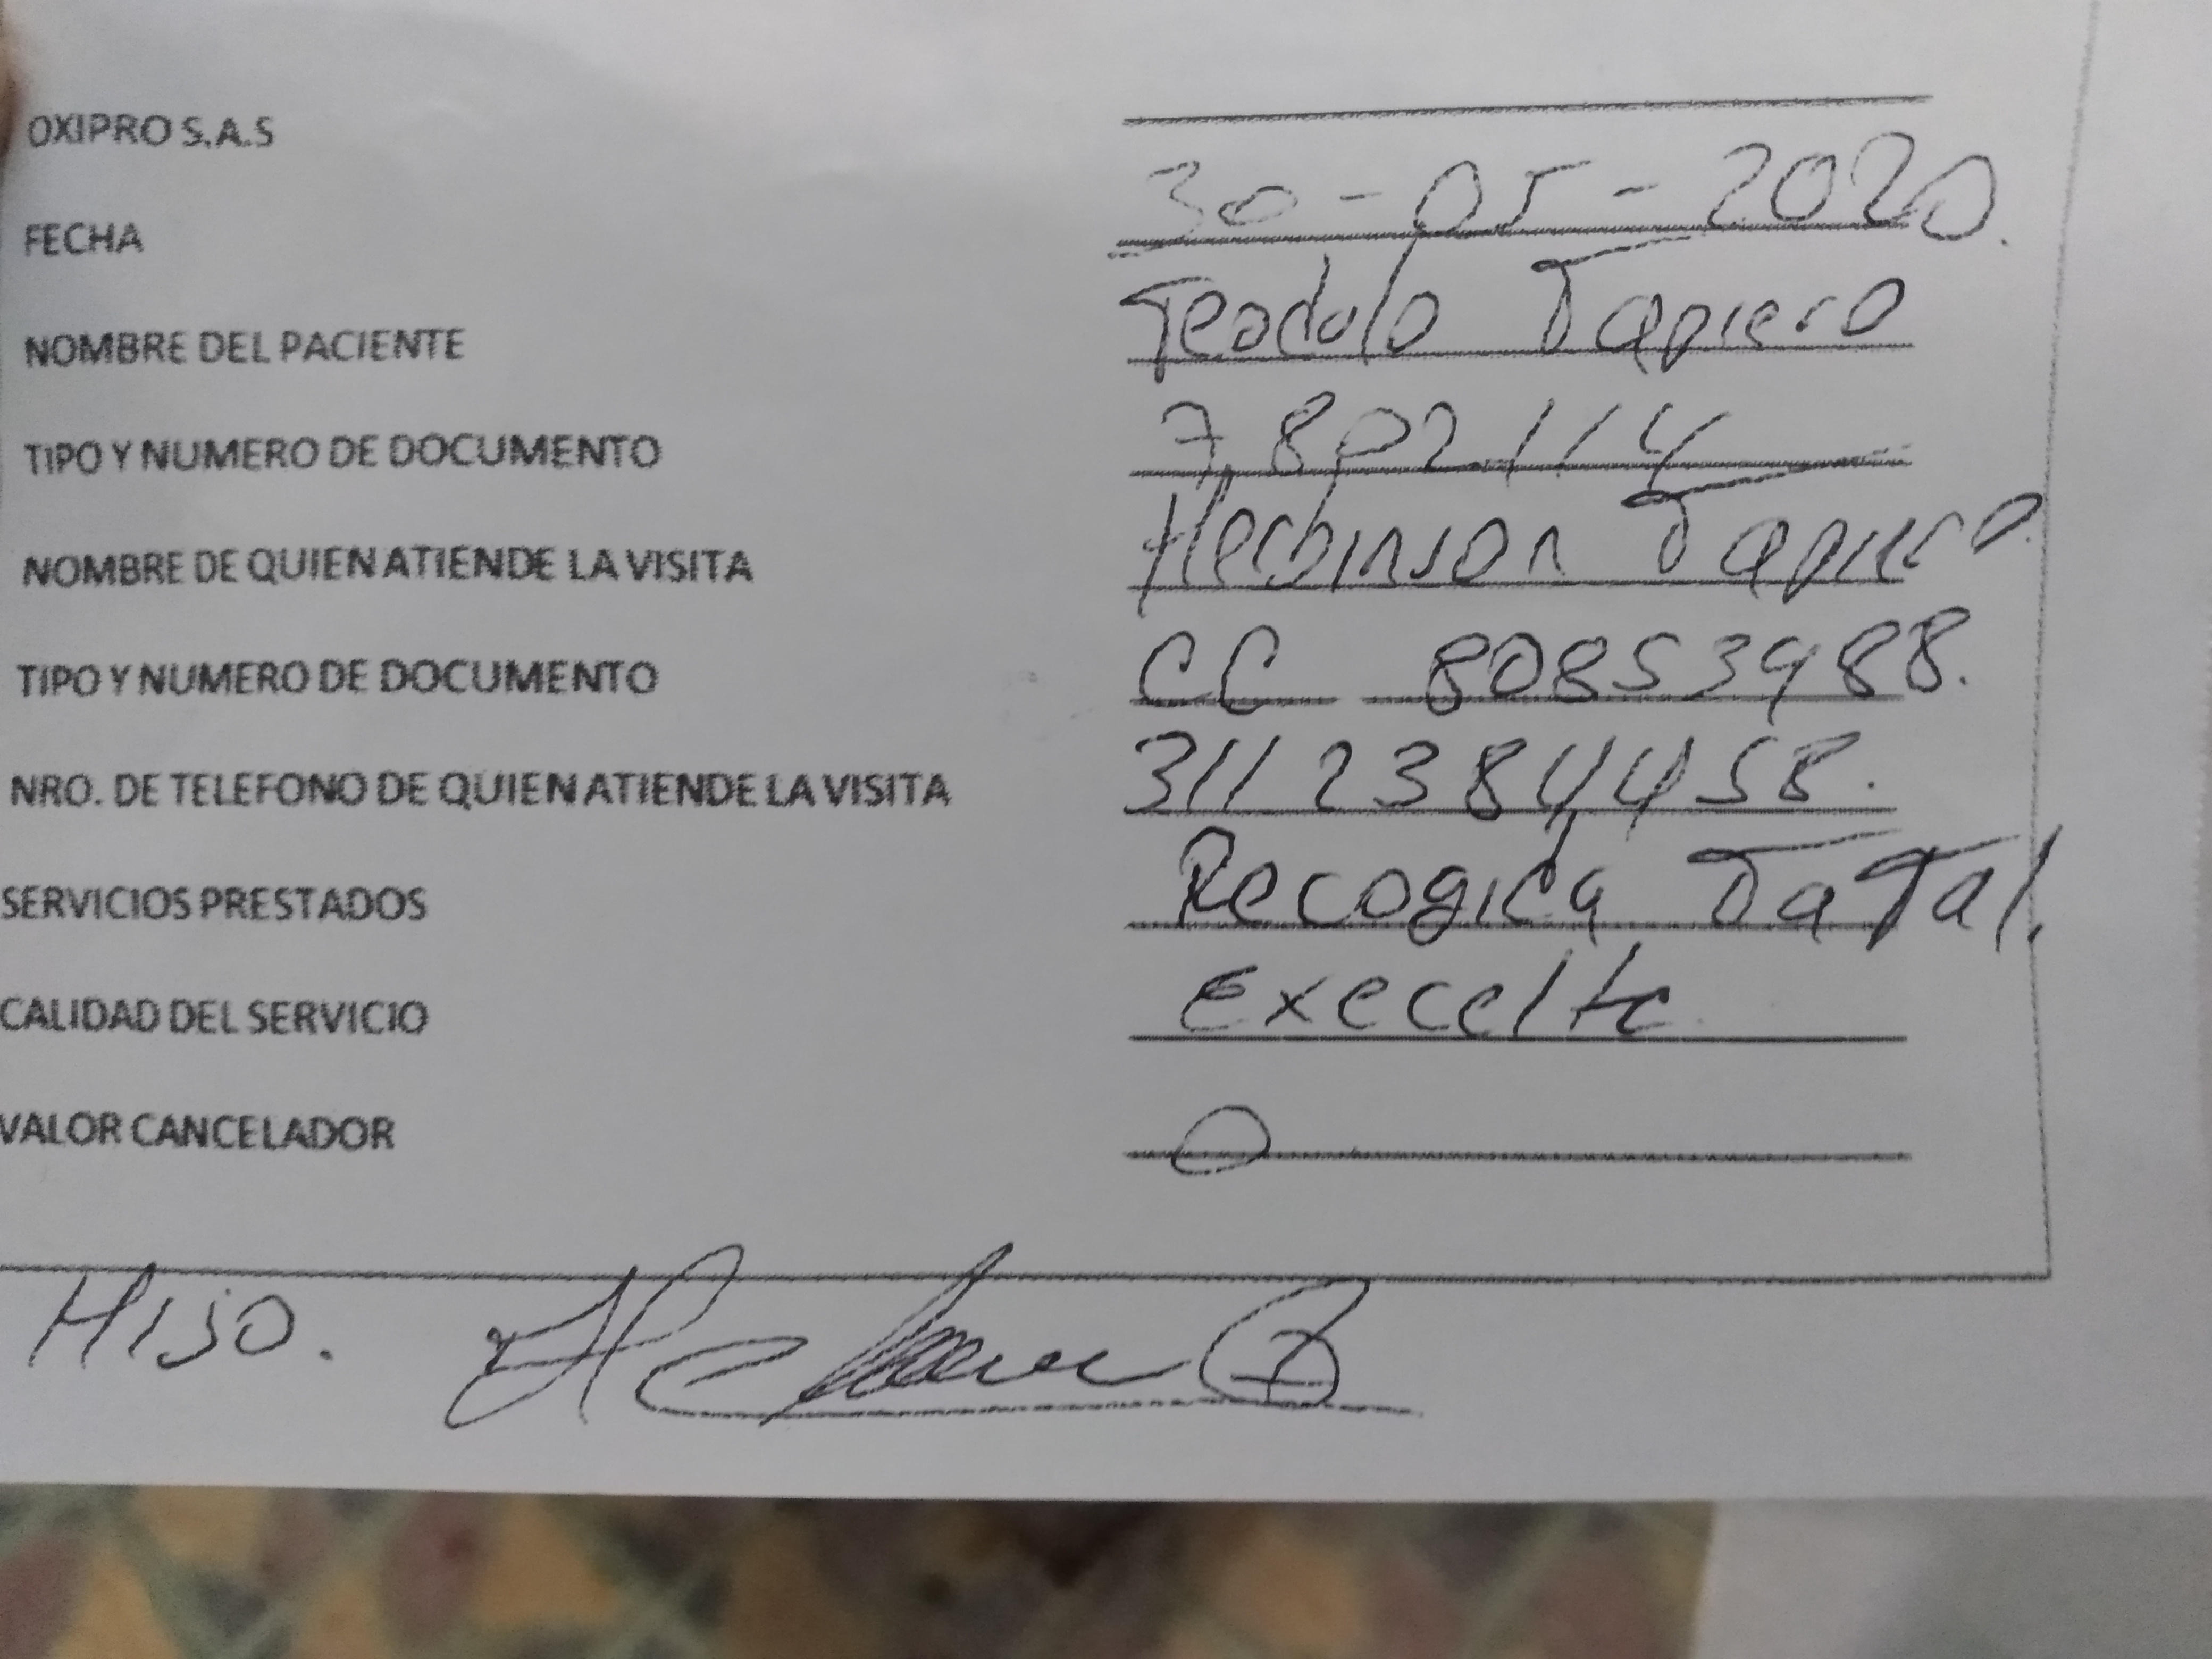 OXIPRO S.A.S
FECHA 30-05-2020.
NOMBRE DEL PACIENTE Teodolo Tapiero
TIPO Y NUMERO DE DOCUMENTO 7,802114
NOMBRE DE QUIEN ATIENDE LA VISITA Herbinson Tapiero.
TIPO Y NUMERO DE DOCUMENTO CC 80853988.
NRO. DE TELEFONO DE QUIEN ATIENDE LA VISITA 3112384458.
SERVICIOS PRESTADOS Recogida TaTal.
CALIDAD DEL SERVICIO Execelte
VALOR CANCELADOR 0
HIJO.